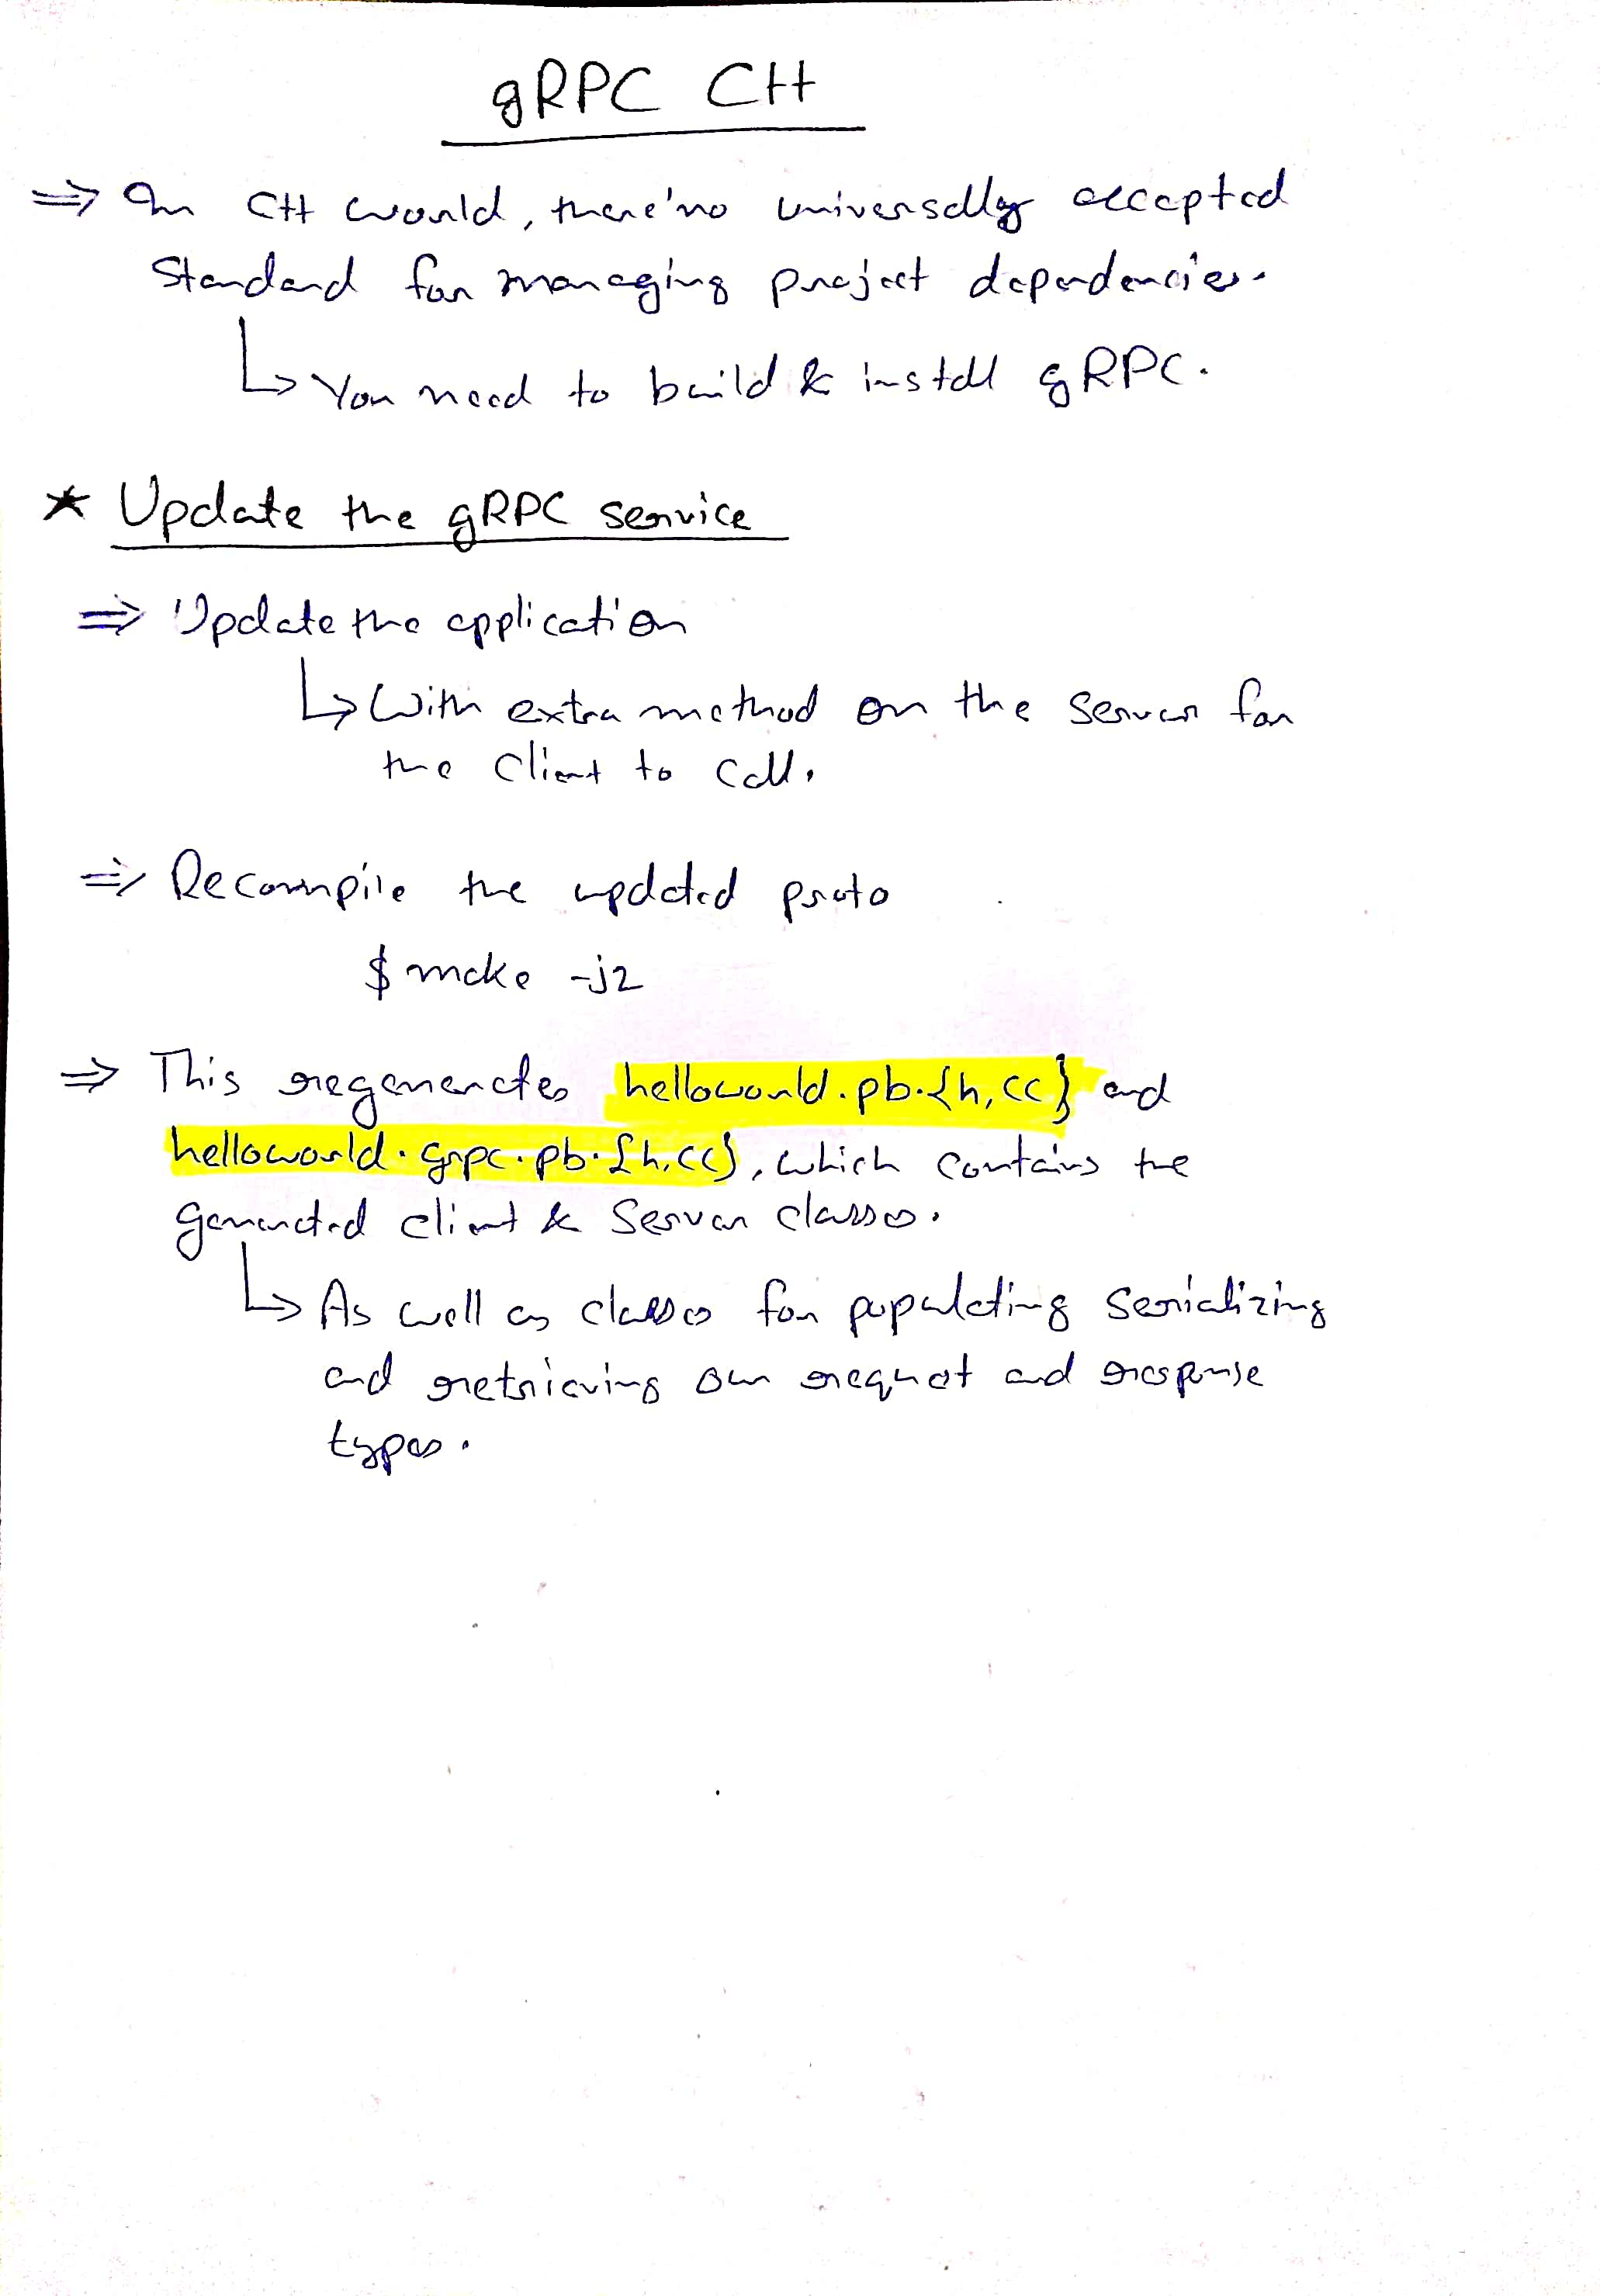 gRPC C++
⇒ In C++ would, there'no universally accepted
Standard for managing project dependencies.
↳ You need to build & install gRPC.
* Update the gRPC service
⇒ Update the application
↳ With extra method on the server for
the Client to call.
⇒ Recompile the updated proto
$ make -j2
⇒ This regenerates helloworld.pb.{h,cc} and
helloworld.grpc.pb.{h,cc}, which contains the
generated client & Server classes.
↳ As well as classes for populating serializing
and retrieving our request and response
types.